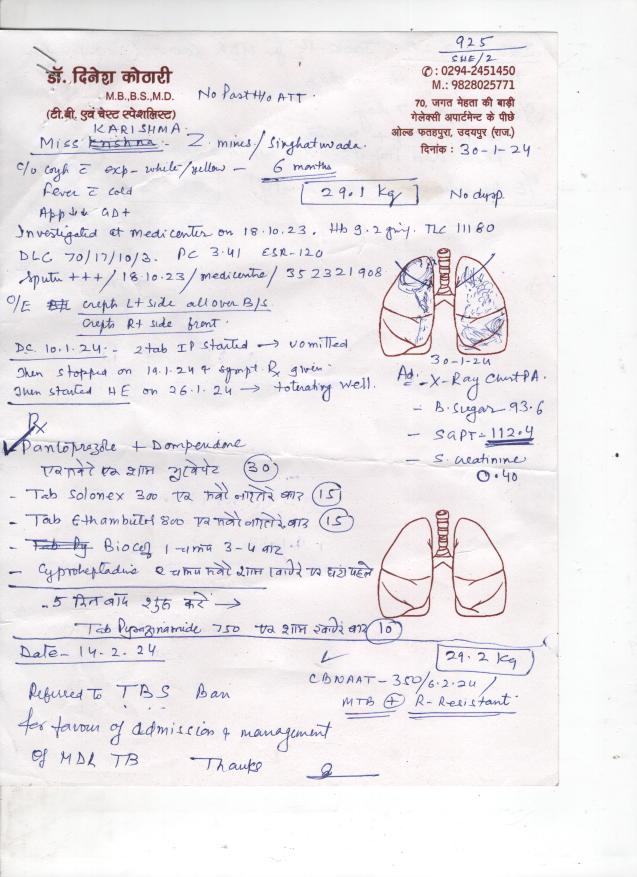 925
SHE/2
डॉ. दिनेश कोठारी
M.B.,B.S.,M.D.
(टी.बी. एवं चेस्ट स्पेशलिस्ट)
No Past H/o ATT.
✆ : 0294-2451450
M.: 9828025771
70, जगत मेहता की बाड़ी
गेलेक्सी अपार्टमेन्ट के पीछे
ओल्ड फतहपुरा, उदयपुर (राज.)
दिनांक : 30-1-24
KARISHMA
Miss Krishna - Z. mines / Singhatwada.
C/o cough c exp - white/yellow - 6 months
Fever c cold
29.1 Kg
No dysp.
App ↓↓ GD+
Investigated at medicenter on 18.10.23. Hb 9.2 gm%. TLC 11180
DLC 70/17/10/3. PC 3.41 ESR-120
Sputum +++/18.10.23/medicentre/352321908
O/E crepts Lt side all over B/S
Crepts Rt side front.
D.C. 10.1.24 - 2 tab IP started → vomitted
Then stopped on 19.1.24 & sympt. Rx given.
Then started HE on 26.1.24 → tolerating well.
30-1-24
Ad. - X-Ray Chest PA.
- B. Sugar - 93.6
- SGPT - 112.4
- S. Creatinine
0.40
Rx
Pantoprazole + Domperidone
एक सवेरे एक शाम भूखे पेट 30
- Tab Solonex 300 एक सवेरे नाश्ते के बाद 15
- Tab Ethambutol 800 एक सवेरे नाश्ते के बाद 15
- Tab Py Bioceq 1 चम्मच 3-4 बार
- Cyproheptadine 2 चम्मच सवेरे शाम खाने से एक घंटा पहले
- 5 दिन बाद शुरू करें →
Tab Pyrazinamide 750 एक शाम खाने के बाद 10
Date - 14.2.24
29.2 Kg
CBNAAT - 350/6.2.24/
MTB + R-Resistant.
Referred to TBS Bari
for favour of admission & management
of MDR TB Thanks